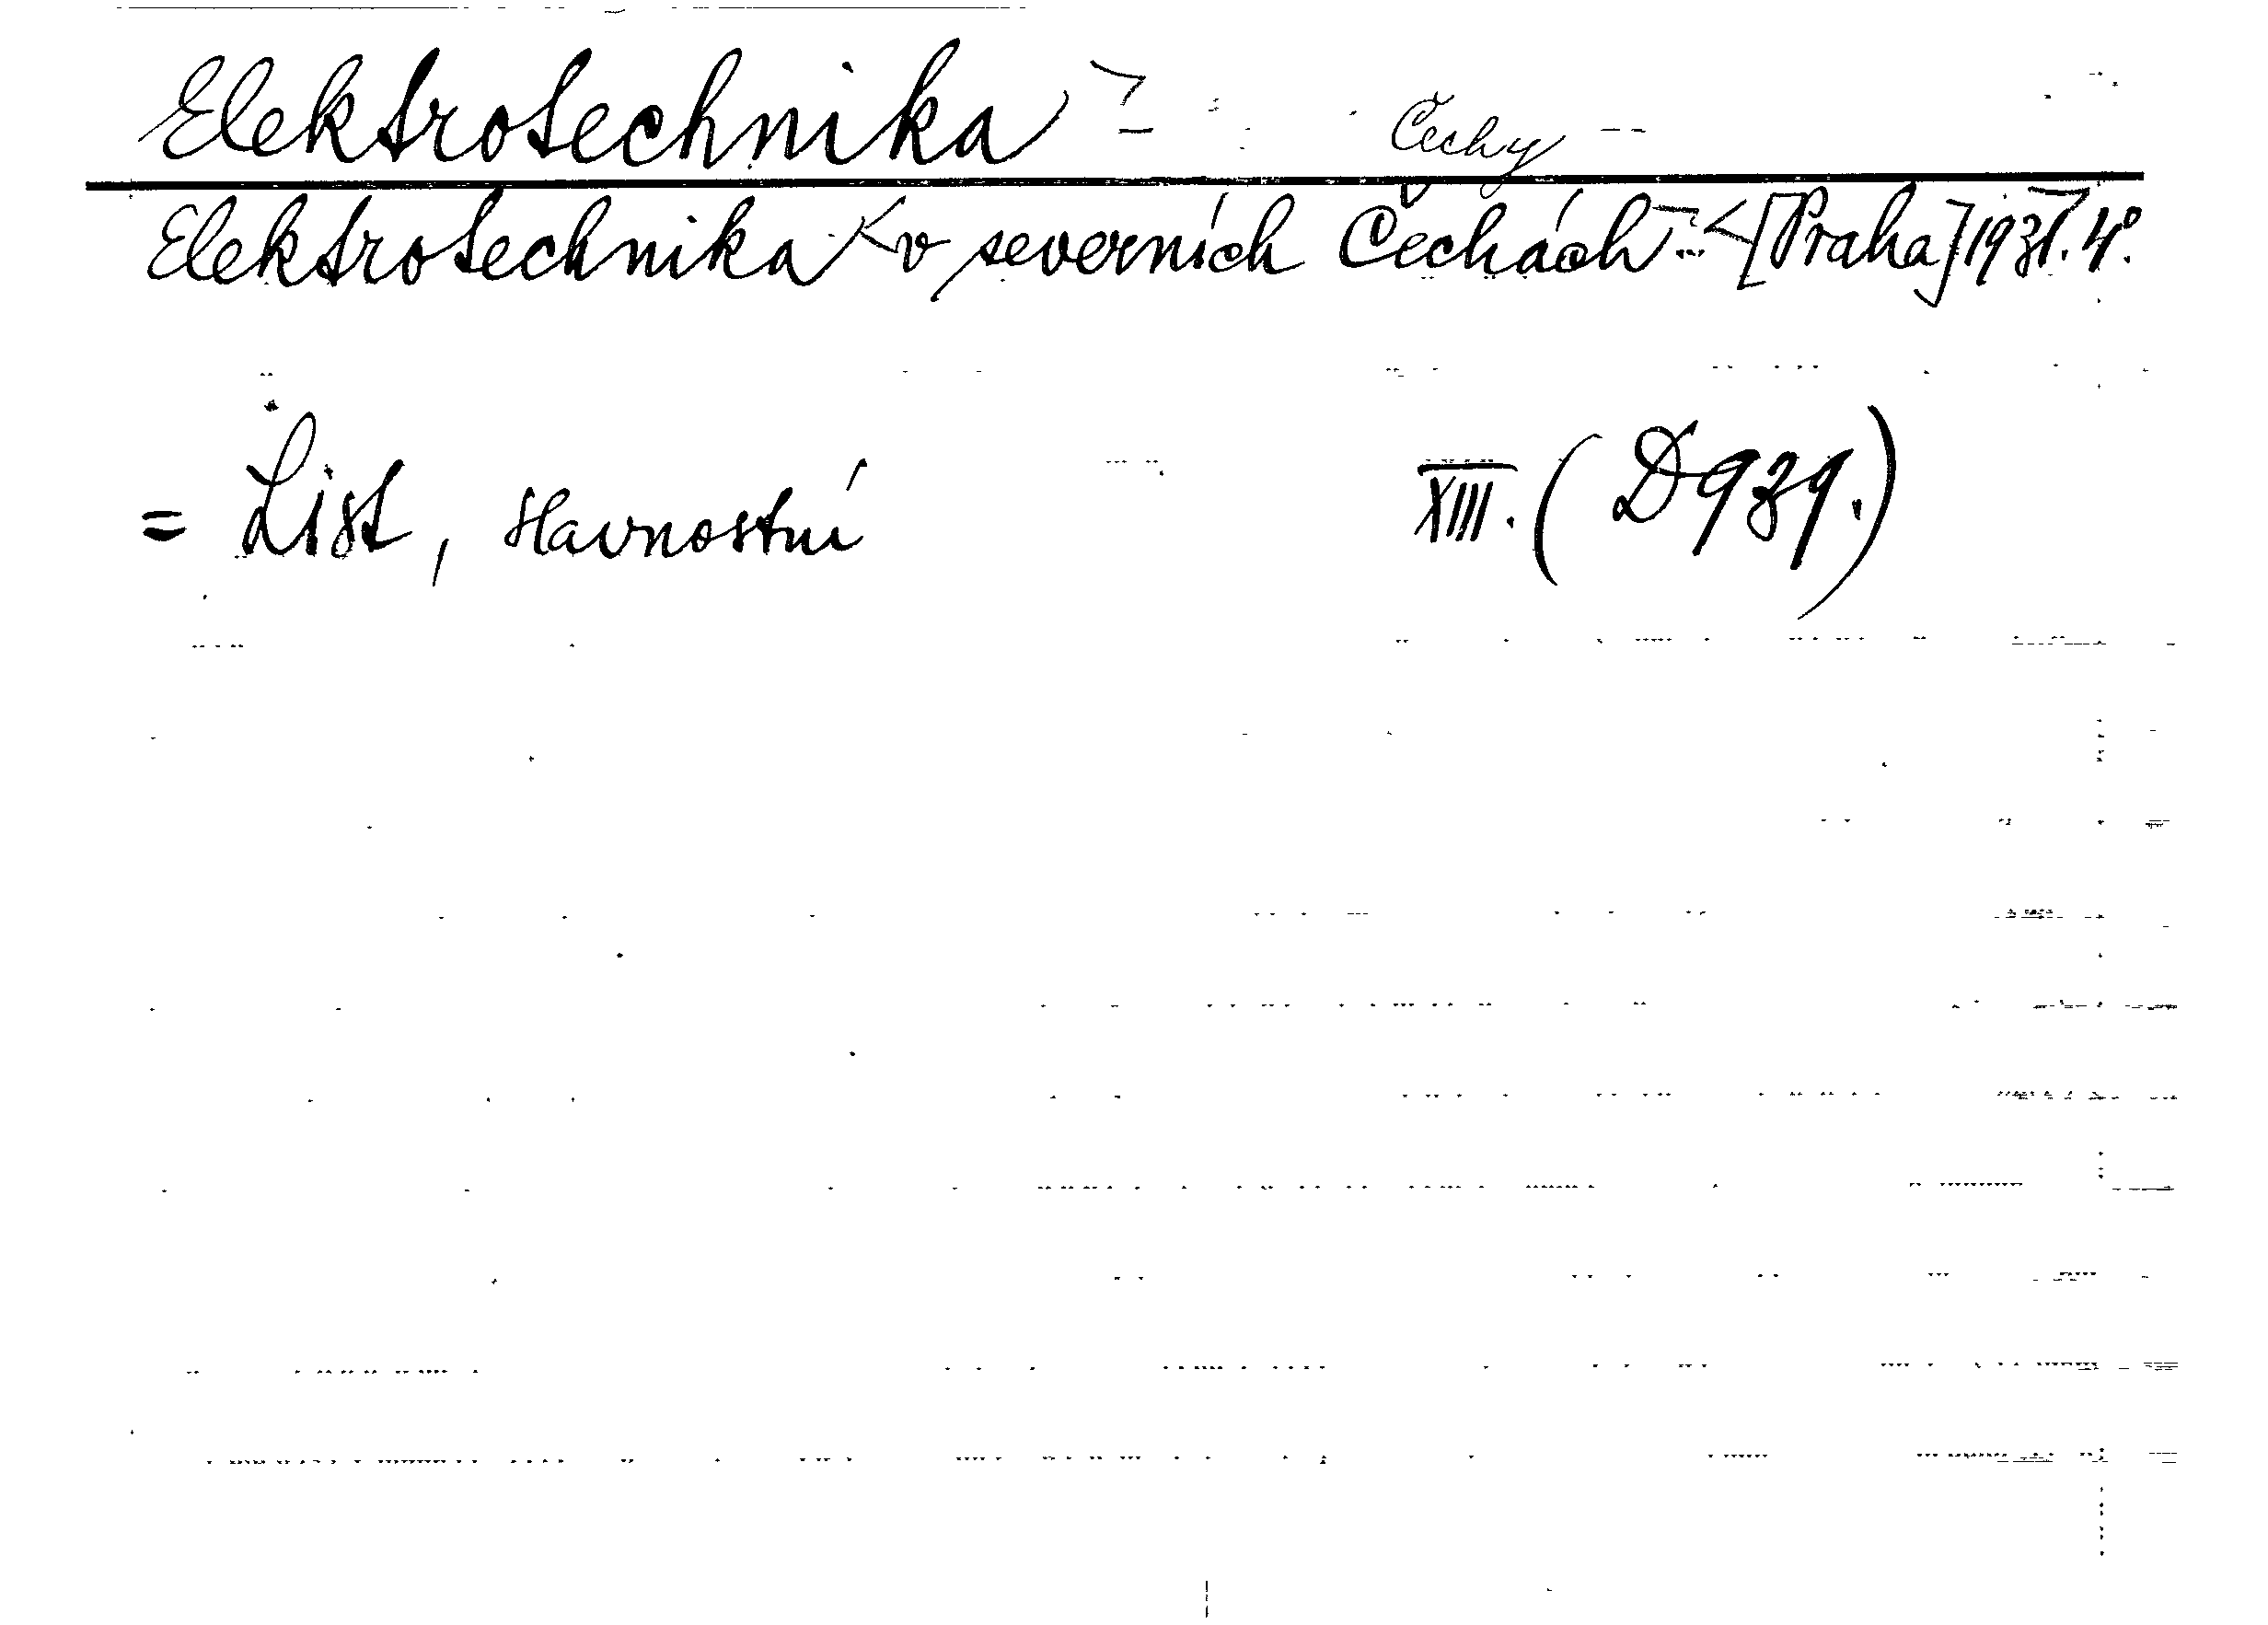 Elektrotechnika Čechy
Elektrotechnika v severních Čechách [Praha] 1931. 4°.
= List, slavnostní XIII. (D 939.)